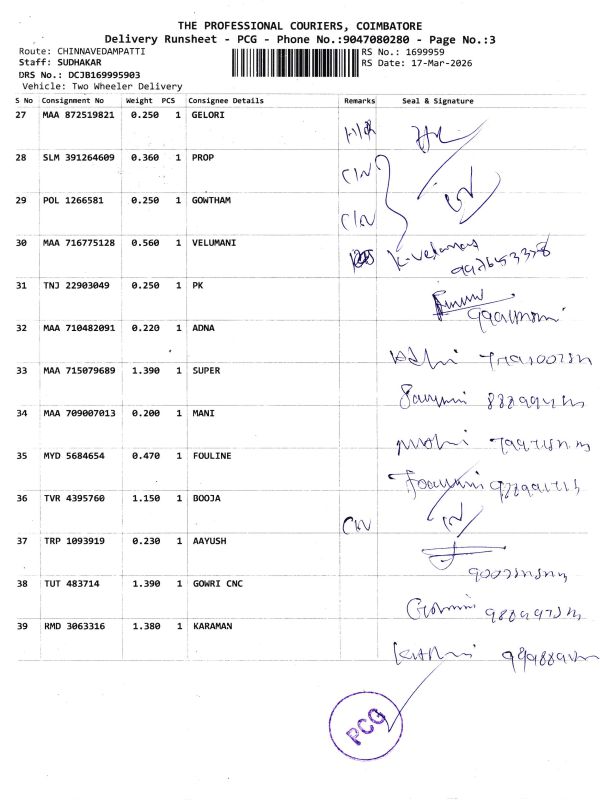 THE PROFESSIONAL COURIERS, COIMBATORE
Delivery Runsheet - PCG - Phone No.:9047080280 - Page No.:3
Route: CHINNAVEDAMPATTI RS No.: 1699959
Staff: SUDHAKAR RS Date: 17-Mar-2026
DRS No.: DCJB169995903
Vehicle: Two Wheeler Delivery
S No Consignment No Weight PCS Consignee Details Remarks Seal & Signature
27 MAA 872519821 0.250 1 GELORI
28 SLM 391264609 0.360 1 PROP
29 POL 1266581 0.250 1 GOWTHAM
30 MAA 716775128 0.560 1 VELUMANI K.Velumani
31 TNJ 22903049 0.250 1 PK
32 MAA 710482091 0.220 1 ADNA
33 MAA 715079689 1.390 1 SUPER
34 MAA 709007013 0.200 1 MANI
35 MYD 5684654 0.470 1 FOULINE
36 TVR 4395760 1.150 1 BOOJA
37 TRP 1093919 0.230 1 AAYUSH
38 TUT 483714 1.390 1 GOWRI CNC
39 RMD 3063316 1.380 1 KARAMAN
PCG